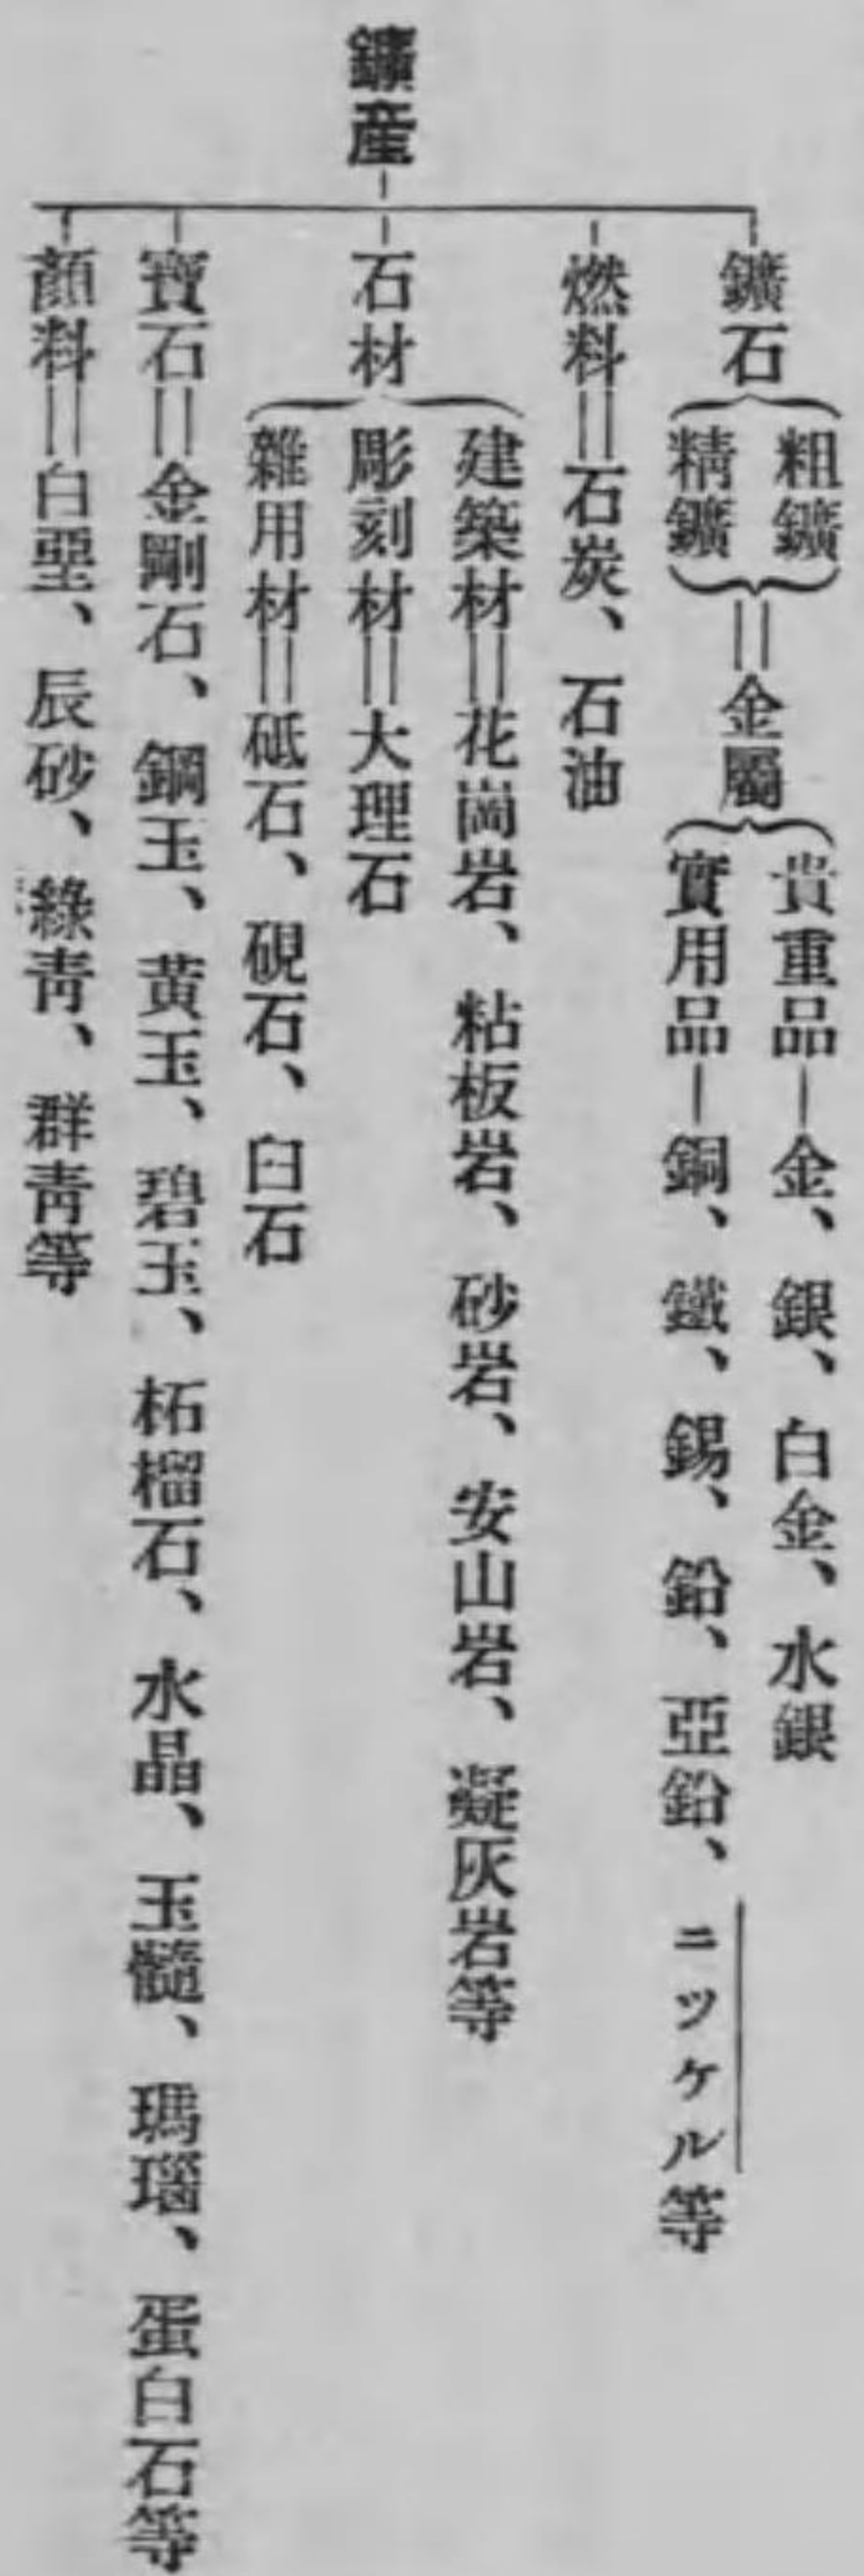 鑛産
鑛石
粗鑛
精鑛
金屬
貴重品―金、銀、白金、水銀
實用品―銅、鐵、錫、鉛、亞鉛、ニツケル等
燃料＝石炭、石油
石材
建築材＝花崗岩、粘板岩、砂岩、安山岩、凝灰岩等
彫刻材＝大理石
雜用材＝砥石、硯石、臼石
寶石＝金剛石、鋼玉、黄玉、碧玉、柘榴石、水晶、玉髓、瑪瑙、蛋白石等
顏料＝白堊、辰砂、綠靑、群靑等